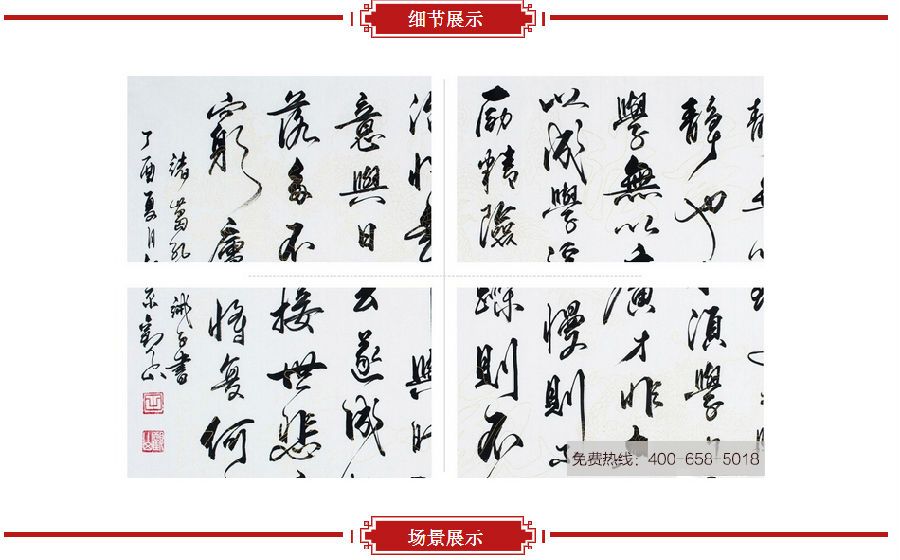 细节展示
意與日
落多不
窮廬
諸葛孔
丁酉夏月
静也
學無以
以成學
励精險
與時
去遂成
接世悲
將復何
誡子書
須學
廣才非
慢則
躁則不
免费热线：400-658-5018
场景展示